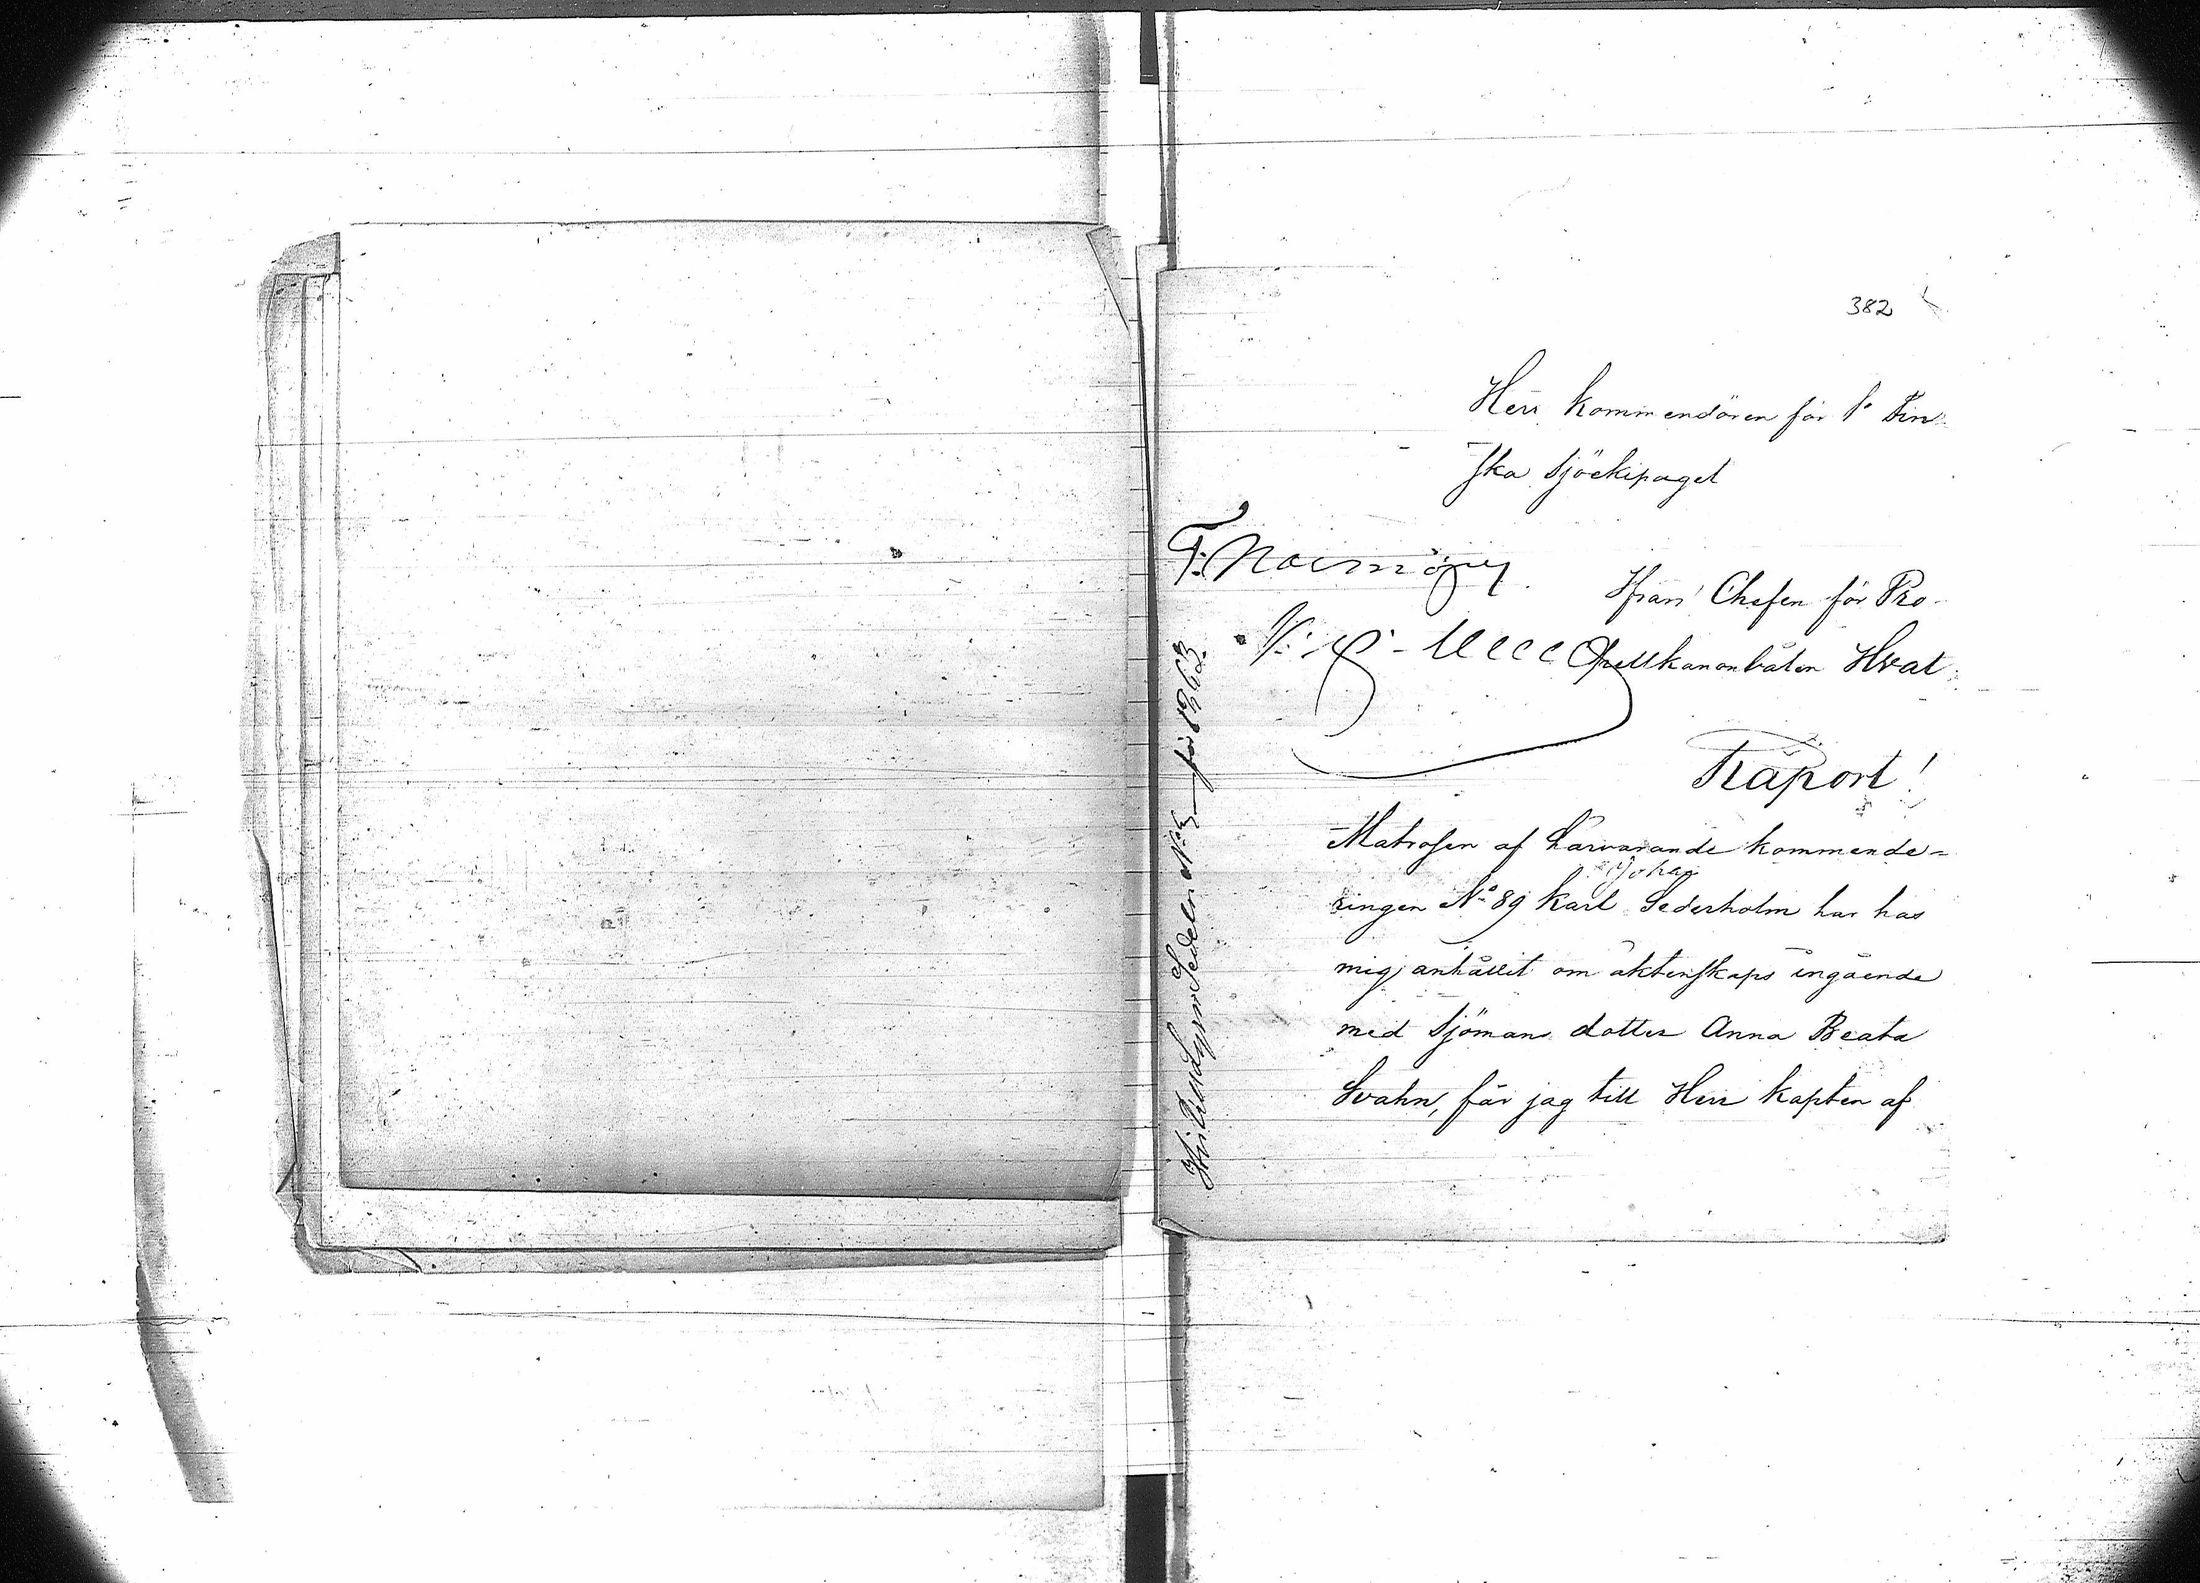 382
Herr Kommendören för 1a Fin
ska Sjöekipaget
Ifrån Chefen för Pro-
pellkanonbåten Hvat
Raport!
Matrosen af härvarande kommende=
ringen No 89 Karl Johan Sederholm har hos
mig anhållit om äktenskaps ingående
med Sjömans dotter Anna Beata
Svahn, får jag till Herr Kapten af
Sedeln No för 1863.